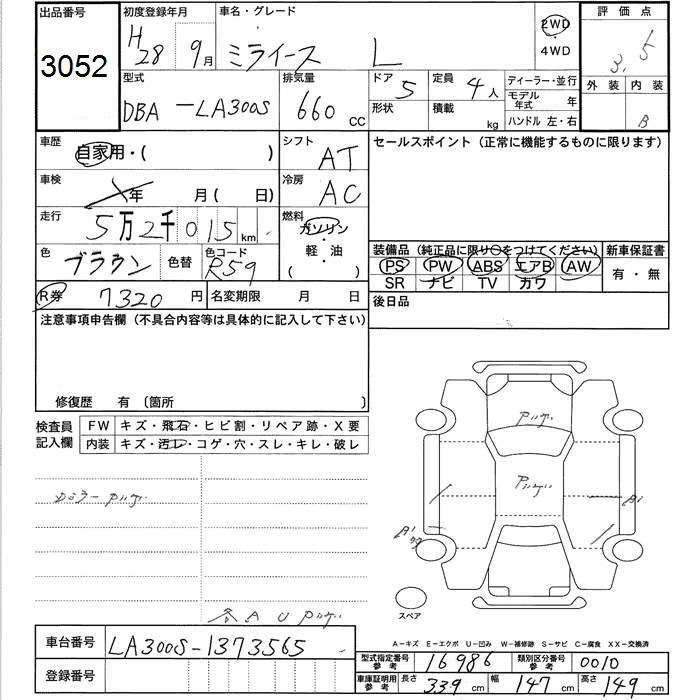 出品番号 初度登録年月 車名・グレード 評価点
3052 H28 9月 ミライース L 2WD 4WD 3.5
型式 排気量 ドア 定員 ディーラー・並行 外装 内装
DBA -LA300S 660 CC 5 4人 モデル年式 年
形状 積載 kg ハンドル 左・右 B
車歴 自家用・( ) シフト AT セールスポイント (正常に機能するものに限ります)
車検 年 月( 日) 冷房 AC
走行 5万2千015km 燃料 ガソリン・軽油 ( )
色 ブラウン 色替 色コード R59
装備品 (純正品に限り○をつけてください) 新車保証書
PS PW ABS エアB AW 有・無
SR ナビ TV カワ
R券 7320円 名変期限 月 日 後日品
注意事項申告欄 (不具合内容等は具体的に記入して下さい)
修復歴 有 〔箇所
検査員記入欄 FW キズ・飛石・ヒビ割・リペア跡・X要
内装 キズ・汚コレ・コゲ・穴・スレ・キレ・破レ
A U
スペア
A-キズ E-エクボ U-凹み W-補修跡 S-サビ C-腐食 XX-交換済
車台番号 LA300S-1373565
型式指定番号参考 16986 類別区分番号参考 0010
登録番号
車庫証明用参考 長さ 339cm 幅 147cm 高さ 149cm